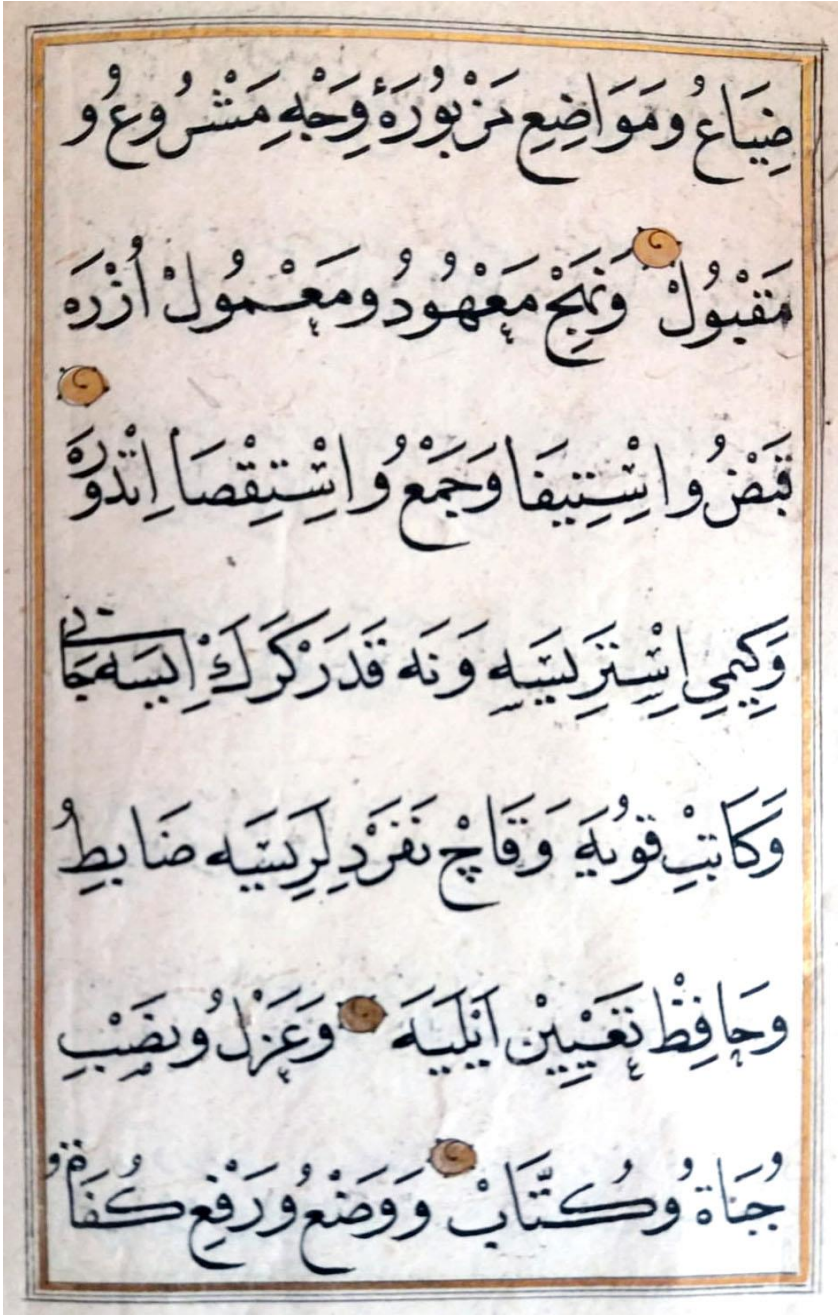 ضِيَاعُ وَمَوَاضِعِ مَزْبُورَهٔ وَجْهِ مَشْرُوعُ وُ
مَقْبُولْ وَنَهْجِ مَعْهُودُ و مَعْمُولْ اُزْرَه
قَبْضُ و اسْتِيفَا وَجَمْعُ و اسْتِقْصَا اِتْدُورَه
وَكِيمِ اِسْتِرِيسَه وَنَه قَدَرْ كَرَكْ اِيسَه جَابِي
وَكَاتِبْ قُويَه وَقَاچْ نَفَرْ دِلِرِيسَه ضَابِطُ
وحَافِظْ تَعْيِينْ اَيْلِيَه وَعَزْلُ ونَصْبِ
جُبَاةُ وُكُتَّابْ وَوَضْعُ ورَفْعِ كُفَاةُ و